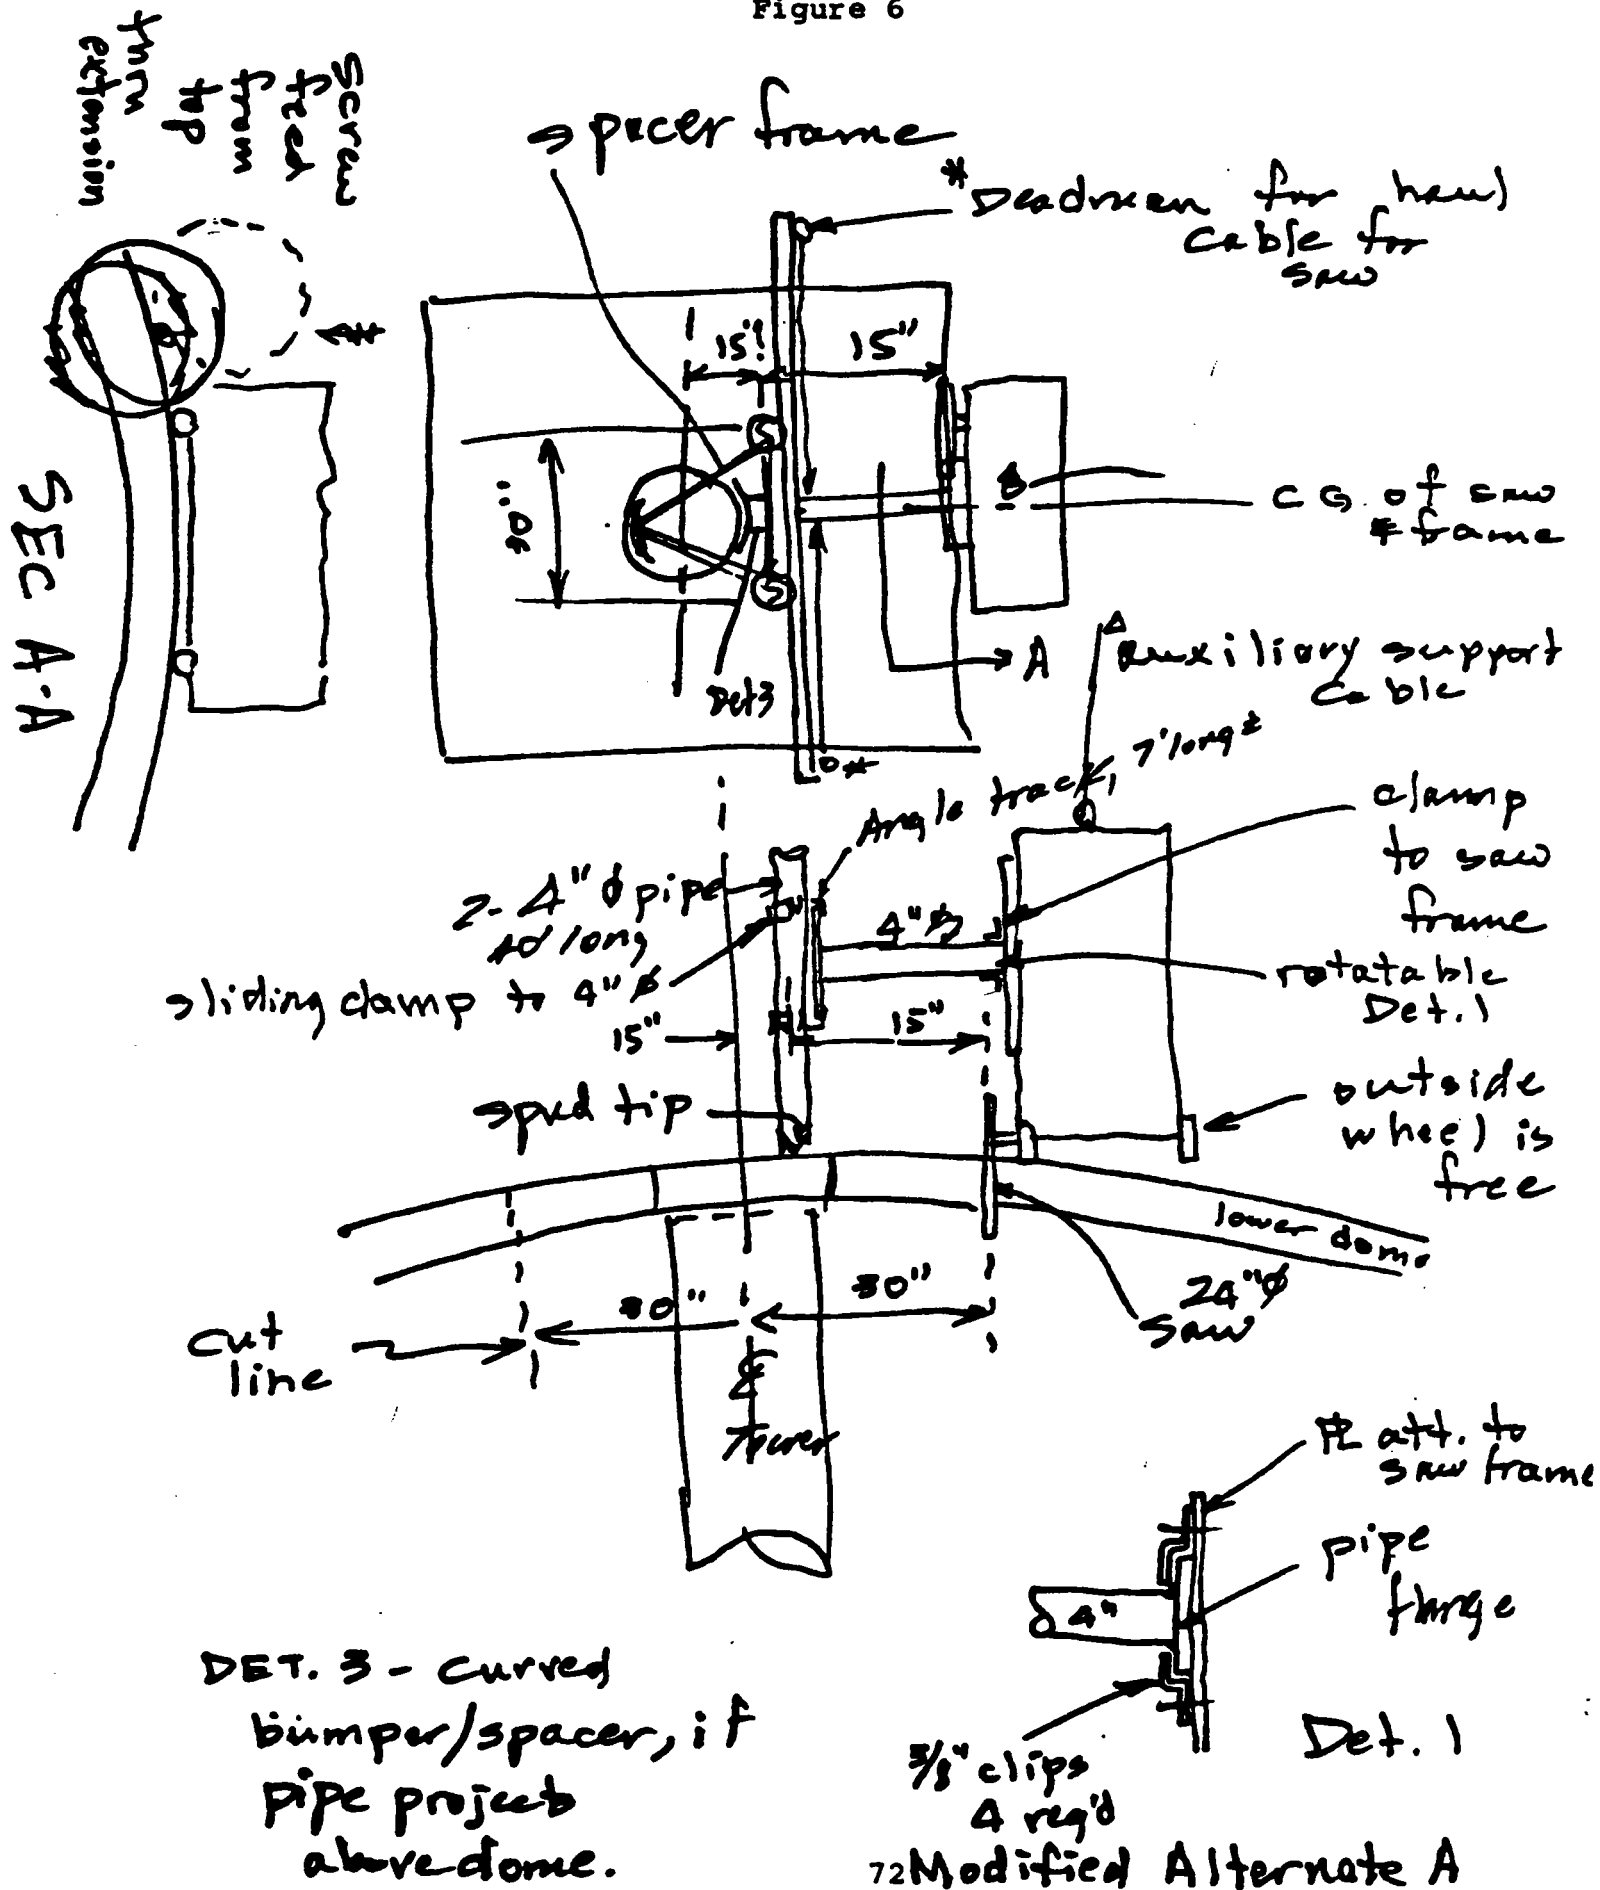 Figure 6
Screw
feed
from
top
thrn
extension
spacer frame
* Deadman for haul
cable for
saw
15"
15"
40"
CG of saw
& frame
A
Det 3
SEC A-A
Auxiliary support
cable
Angle track, 7' long ±
clamp
to saw
frame
2- 4" ϕ pipe
10' long
4" ϕ
sliding clamp to 4" ϕ
rotatable
Det. 1
15"
15"
spud tip
outside
wheel is
free
lower dome
30"
30"
24" ϕ
saw
cut
line
℄
Tower
PL att. to
saw frame
pipe
flange
4"
DET. 3 - Curved
bumper/spacer, if
pipe projects
above dome.
3/8" clips
4 req'd
Det. 1
72 Modified Alternate A